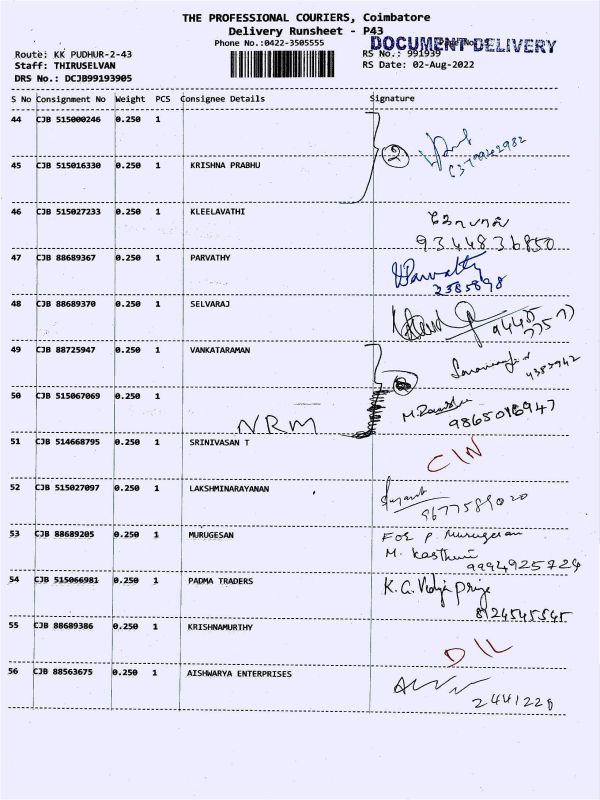 THE PROFESSIONAL COURIERS, Coimbatore
Delivery Runsheet - P43
Phone No.:0422-3505555
DOCUMENT DELIVERY
Route: KK PUDHUR-2-43
RS No.: 991939
Staff: THIRUSELVAN
RS Date: 02-Aug-2022
DRS No.: DCJB99193905
S No Consignment No Weight PCS Consignee Details Signature
44 CJB 515000246 0.250 1
2
45 CJB 515016330 0.250 1 KRISHNA PRABHU
46 CJB 515027233 0.250 1 KLEELAVATHI
9344836850
47 CJB 88689367 0.250 1 PARVATHY Parvathy
2385898
48 CJB 88689370 0.250 1 SELVARAJ
49 CJB 88725947 0.250 1 VANKATARAMAN
4383942
50 CJB 515067069 0.250 1
NRM
9865016947
51 CJB 514668795 0.250 1 SRINIVASAN T
C/N
52 CJB 515027097 0.250 1 LAKSHMINARAYANAN
9677589020
53 CJB 88689205 0.250 1 MURUGESAN For P. Murugesan
M. Kasthuri
9994925724
54 CJB 515066981 0.250 1 PADMA TRADERS K.G. Vidya priya
8124545545
55 CJB 88689386 0.250 1 KRISHNAMURTHY
D/L
56 CJB 88563675 0.250 1 AISHWARYA ENTERPRISES
2441228